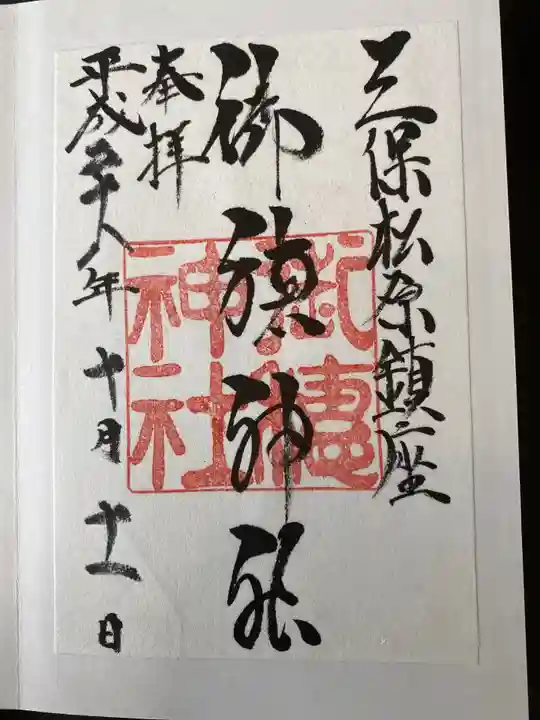 三保松原鎮座
御穂神社
奉拝
平成二十八年十月十一日
御穗神社